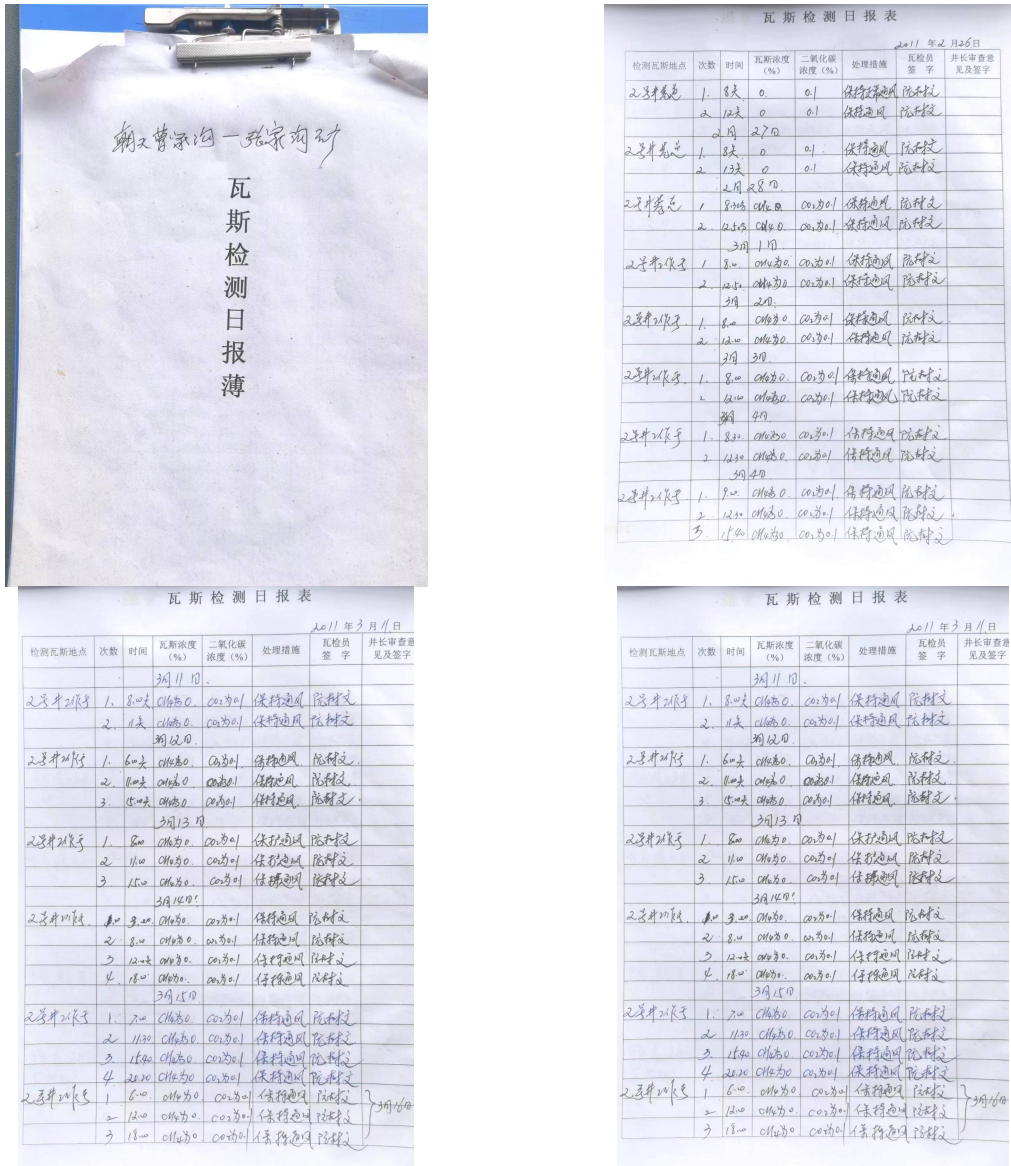 瓦斯检测日报薄
瓦斯检测日报表
2011 年 2 月 26 日
检测瓦斯地点 次数 时间 瓦斯浓度(%) 二氧化碳浓度(%) 处理措施 瓦检员签字 井长审查意见及签字
2号井 1. 8 0. 0.1 保持通风 阮树文
2 12 0 0.1 保持通风 阮树文
2月 27日
2号井 1. 8 0 0.1 保持通风 阮树文
2 13 0 0.1 保持通风 阮树文
2月 28日.
2号井 1 8.30 CH4 CO2为0.1 保持通风 阮树文
2. 12.50 CH4 CO2为0.1 保持通风 阮树文
3月 1日
2号井 1 8.00 CH4为0. CO2为0.1 保持通风 阮树文
2. 12.50 CH4为0 CO2为0.1 保持通风 阮树文
3月 2日.
2号井 1. 8.00 CH4为0. CO2为0.1 保持通风 阮树文
2 12.00 CH4为0. CO2为0.1 保持通风 阮树文
3月 3日.
2号井 1. 8.00 CH4为0. CO2为0.1 保持通风 阮树文
2 12.00 CH4为0. CO2为0.1 保持通风 阮树文
4日
2号井 1. 8.30 CH4为0 CO2为0.1 保持通风 阮树文
2 12.30 CH4为0. CO2为0.1 保持通风 阮树文
3月 4日
2号井 1. 9.00 CH4为0 CO2为0.1 保持通风 阮树文
2 12.30 CH4为0. CO2为0.1 保持通风 阮树文
3. 15.40 CH4为0 CO2为0.1 保持通风 阮树文
瓦斯检测日报表
2011 年 3 月 11 日
检测瓦斯地点 次数 时间 瓦斯浓度(%) 二氧化碳浓度(%) 处理措施 瓦检员签字 井长审查意见及签字
3月11日.
2号井 1. 8.00 CH4为0. CO2为0.1 保持通风 阮树文
2. 11 CH4为0. CO2为0.1 保持通风 阮树文
3月12日.
2号井 1. 6.00 CH4为0. CO2为0.1. 保持通风 阮树文.
2. 11.00 CH4为0 CO2为0.1 保持通风 阮树文
3. 15.00 CH4为0 CO2为0.1 保持通风 阮树文.
3月13日.
2号井 1. 8.00 CH4为0. CO2为0.1 保持通风 阮树文
2 11.00 CH4为0. CO2为0.1 保持通风 阮树文
3 15.00 CH4为0. CO2为0.1 保持通风 阮树文
3月14日!
2号井 CH4为0. CO2为0.1 保持通风 阮树文
2 8.00 CH4为0. CO2为0.1 保持通风 阮树文
3 12.00 CH4为0. CO2为0.1 保持通风 阮树文
4. 18.00 CH4为0. CO2为0.1 保持通风 阮树文
3月15日
2号井 1. 7.00 CH4为0. CO2为0.1 保持通风 阮树文
2 11.30 CH4为0. CO2为0.1 保持通风 阮树文
3. 15.40 CH4为0. CO2为0.1 保持通风 阮树文
4 20.20 CH4为0 CO2为0.1 保持通风 阮树文
2号井 1 6.00 CH4为0 CO2为0.1 保持通风 阮树文
3月16日
2 12.00 CH4为0 CO2为0.1 保持通风 阮树文
3 18.00 CH4为0 CO2为0.1 保持通风 阮树文
瓦斯检测日报表
2011 年 3 月 11 日
检测瓦斯地点 次数 时间 瓦斯浓度(%) 二氧化碳浓度(%) 处理措施 瓦检员签字 井长审查意见及签字
3月11日.
2号井 1. 8.00 CH4为0. CO2为0.1 保持通风 阮树文
2. 11 CH4为0. CO2为0.1 保持通风 阮树文
3月12日.
2号井 1. 6.00 CH4为0. CO2为0.1. 保持通风 阮树文.
2. 11.00 CH4为0 CO2为0.1 保持通风 阮树文
3. 15.00 CH4为0 CO2为0.1 保持通风 阮树文.
3月13日
2号井 1. 8.00 CH4为0. CO2为0.1 保持通风 阮树文
2 11.00 CH4为0. CO2为0.1 保持通风 阮树文
3 15.00 CH4为0. CO2为0.1 保持通风 阮树文
3月14日!
2号井 CH4为0. CO2为0.1 保持通风 阮树文
2 8.00 CH4为0. CO2为0.1 保持通风 阮树文
3 12.00 CH4为0. CO2为0.1 保持通风 阮树文
4. 18.00 CH4为0. CO2为0.1 保持通风 阮树文
3月15日
2号井 1. 7.00 CH4为0. CO2为0.1 保持通风 阮树文
2 11.30 CH4为0. CO2为0.1 保持通风 阮树文
3. 15.40 CH4为0. CO2为0.1 保持通风 阮树文
4 20.20 CH4为0 CO2为0.1 保持通风 阮树文
2号井 1 6.00 CH4为0 CO2为0.1 保持通风 阮树文
3月16日
2 12.00 CH4为0 CO2为0.1 保持通风 阮树文
3 18.00 CH4为0 CO2为0.1 保持通风 阮树文